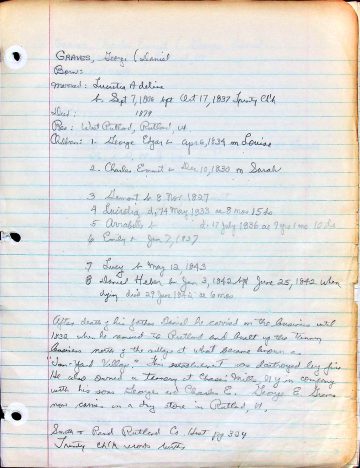 GRAVES, George (Daniel
Born:
married: Lucretia Adeline
b Sept 7, bpt Oct 17, 1837 Trinity Ch'h
Died: 1879
Res: West Rutland, Rutland, Vt
Children: 1. George Edgar b apr 6, 1834 m Louise
2. Charles Emmet b Dec 10, 1830 m Sarah
3 b 8 Nov 1827
4 d. 14 May 1833 ae 8 mos 15 ds
5 Arrabella b d. 17 July 1836 ae 7 yrs 1 mo 10 ds
6 Emily b Jan 7, 1837
7 Lucy b May 12, 1843
8 Daniel b Jan 3, 1842 bpt June 25, 1842 when
dying died 29 June 1842 ae 6 mos
After death of his father Daniel he carried on the business until
1832 when he removed to Rutland and built up the tannery
business north of the village at what became known as
"Tan-Yard Village." This establishment was destroyed by fire
He also owned a tannery at Chasm Mills N.Y. in company
with his sons George and Charles E. George E. Graves
now carries on a dry store in Rutland, Vt.
Smith & Rand Rutland Co Hist pg 334
Trinity Ch'h records births